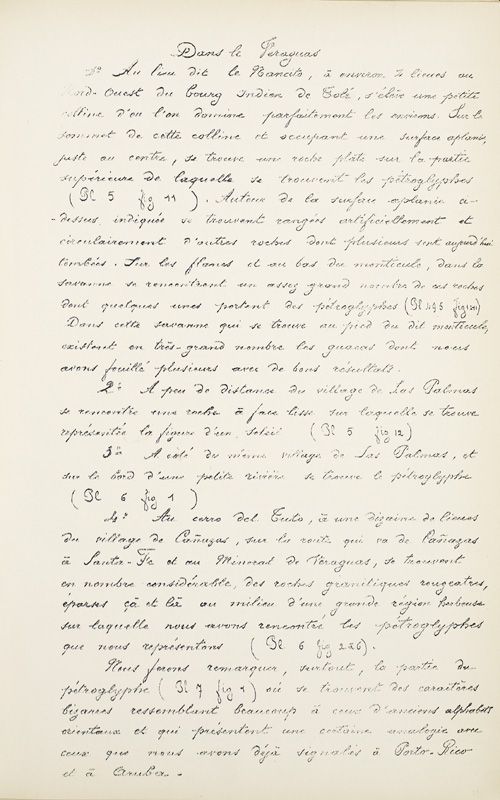 Dans le Veraguas
1º Au lieu dit le Nancito, à environ 4 lieues au
Nord-Ouest du bourg Indien de Tolé, s'élève une petite
colline d'ou l'on domine parfaitement les environs. Sur le
sommet de cette colline et occupant une surface aplanie,
juste au centre, se trouve une roche plate sur la partie
supérieure de laquelle se trouvent les pétroglyphes
(Pl 5 fig 11). Autour de la surface aplanie ci-
-dessus indiquée se trouvent rangées artificiellement et
circulairement d'autres roches dont plusieurs sont aujourd'hui
tombées. Sur les flancs et au bas du monticule, dans la
savanne se rencontrent un assez grand nombre de ces roches
dont quelques unes portent des pétroglyphes (Pl 4,5 fig
Dans cette savanne qui se trouve au pied du dit monticule,
existent en très-grand nombre les guacas dont nous
avons fouillé plusieurs avec de bons résultats.
2º A peu de distance du village de Las Palmas
se rencontre une roche à face lisse sur laquelle se trouve
représentée la figure d'un soleil (Pl 5 fig 12)
3º A côté du même village de Las Palmas, et
sur le bord d'une petite rivière se trouve le pétroglyphe
(Pl 6 fig 1)
4º Au cerro del Tuto, à une dizaine de lieues
du village de Cañazas, sur la route qui va de Cañazas
à Santa-Fe et au Mineral de Veraguas, se trouvent
en nombre considérable, des roches granitiques rougeatres,
éparses çà et là au milieu d'une grande région herbeuse
sur laquelle nous avons rencontré les pétroglyphes
que nous représentons (Pl 6 fig 2à6).
Nous ferons remarquer, surtout, la partie du
pétroglyphe (Pl 7 fig 1) où se trouvent des caractères
bizarres ressemblant beaucoup à ceux d'anciens alphabets
orientaux et qui présentent une certaine analogie avec
ceux que nous avons déjà signalés à Porto-Rico
et à Aruba.